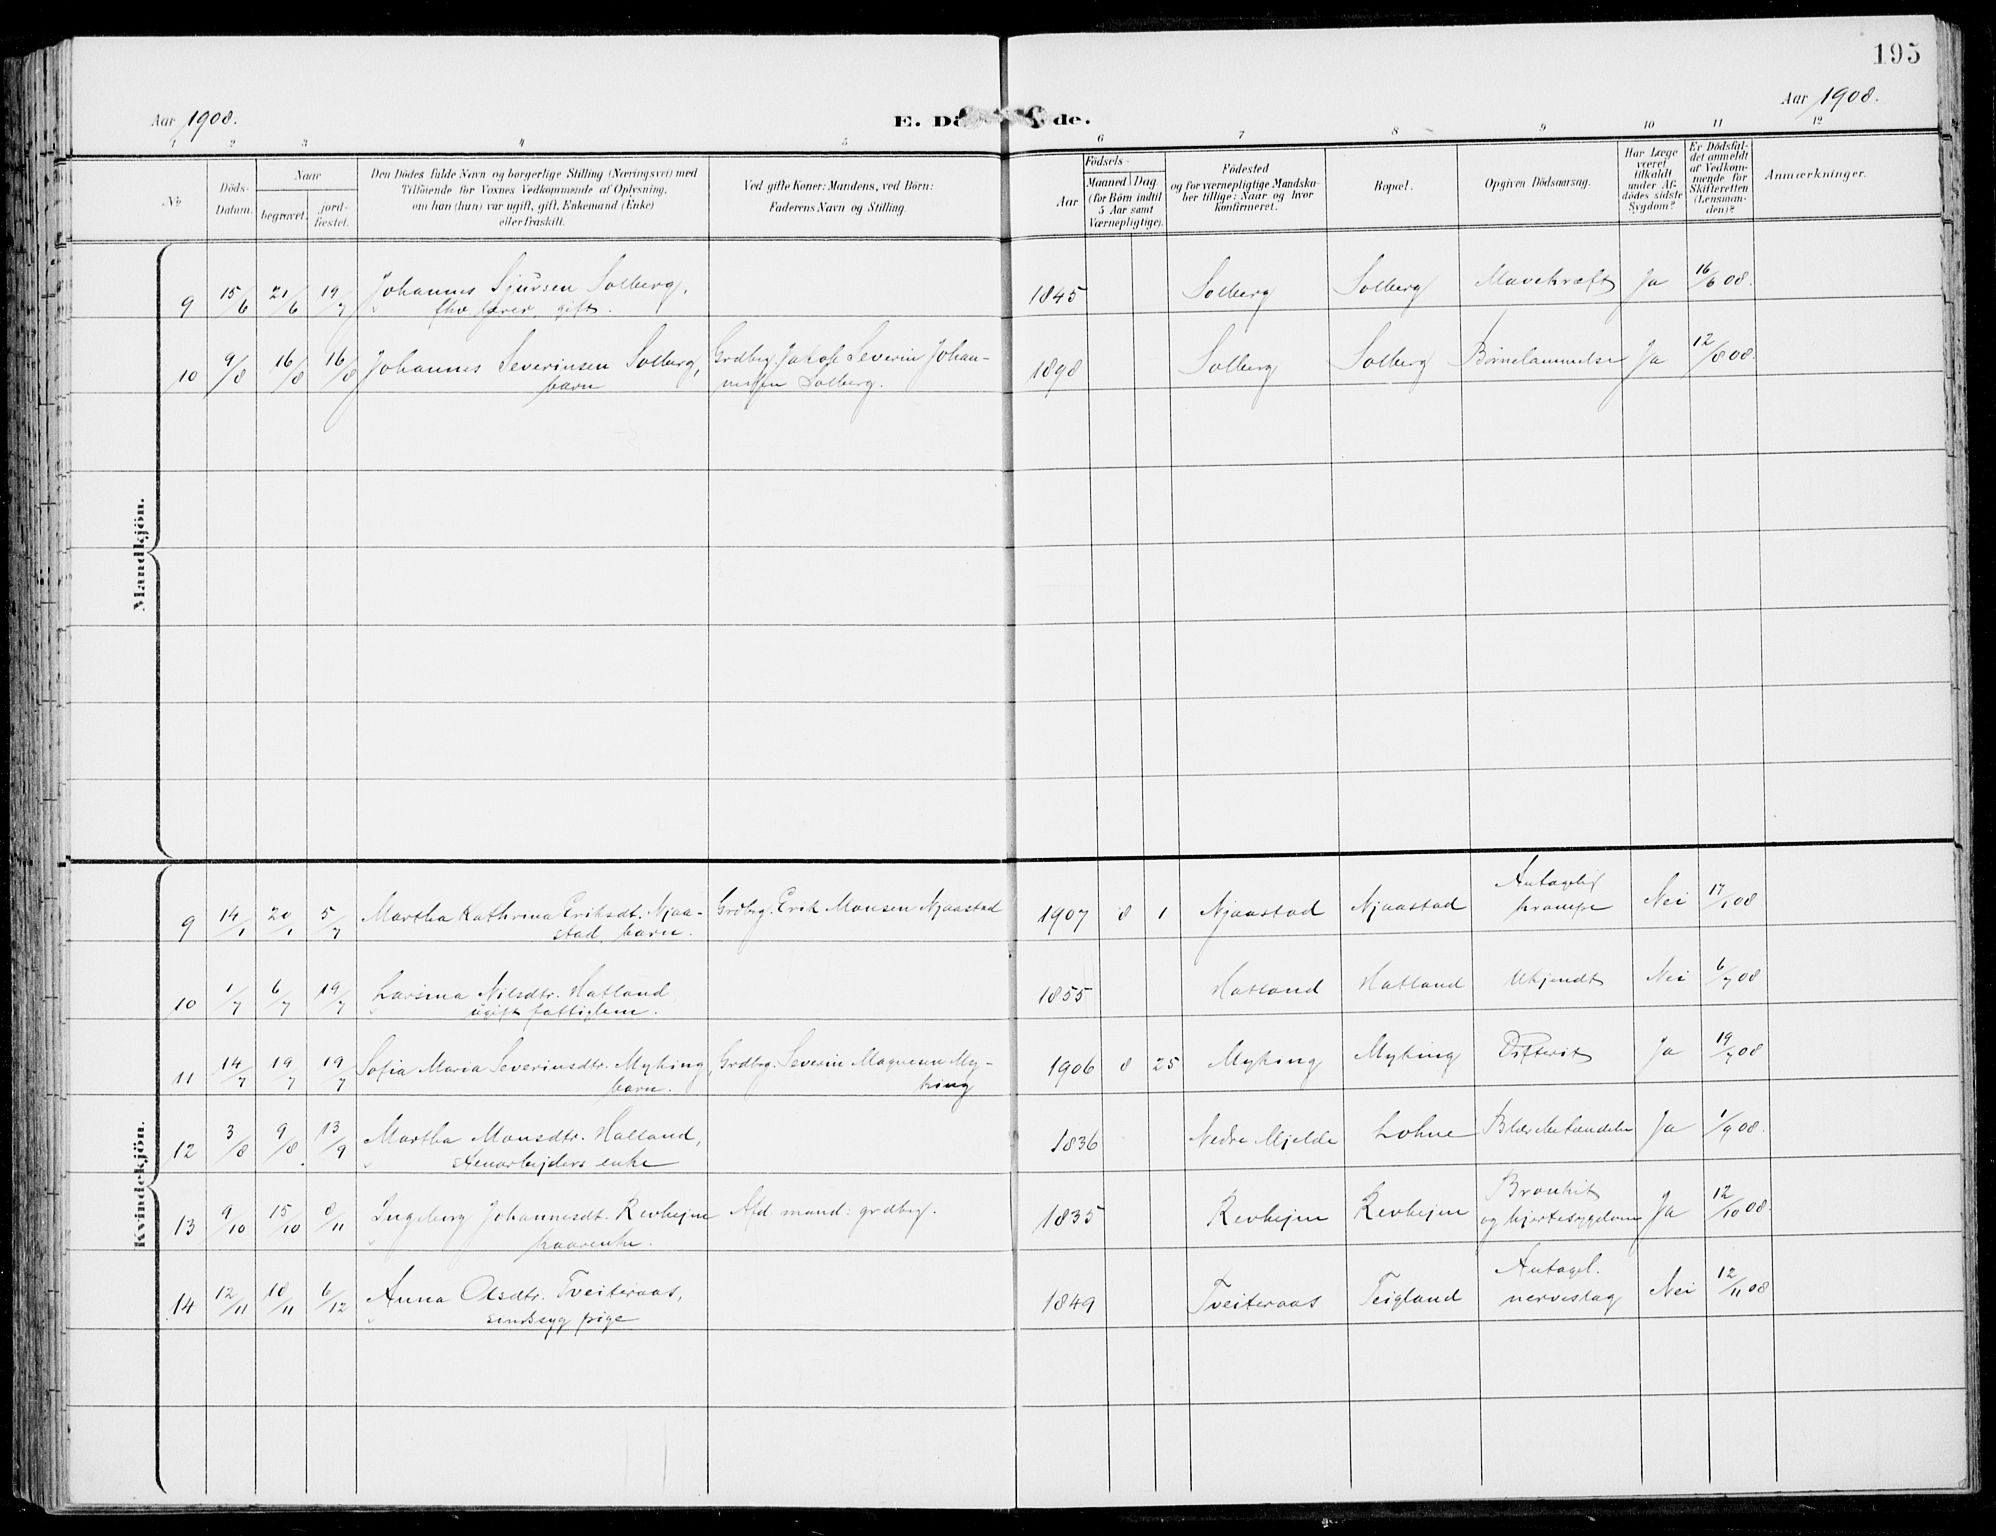 195
Aar 1908.
E. Dö de.
Aar 1908.
1 2 3 4 5 6 7 8 9 10 11 12
No
Döds-Datum.
Naar
begravet.
jord-fæstet.
Den Dödes fulde Navn og borgerlige Stilling (Næringsvei) med
Tilföiende for Voxnes Vedkommende af Oplysning,
om han (hun) var ugift, gift, Enkemand (Enke)
eller fraskilt.
Ved gifte Koner: Mandens, ved Börn:
Faderens Navn og Stilling.
Födsels-
Aar
Maaned Dag
(for Börn indtil
5 Aar samt
Værnepligtige).
Födested
og for værnepligtige Mandska-
ber tillige: Naar og hvor
konfirmeret.
Bopæl.
Opgiven Dödsaarsag.
Har Læge
været
tilkaldt
under Af-
dödes sidste
Sygdom?
Er Dödsfal-
det anmeldt
af Vedkom-
mende for
Skifteretten
(Lensman-
den)?
Anmærkninger.
Mandkjön.
9 15/6 21/6 19/7 Johannes Sjursen Solberg, 1845 Solberg Solberg Mavekræft Ja 16/6 08.
fhv. gift.
10 9/8 16/8 16/8 Johannes Severinsen Solberg, Grdbrg. Jakob Severin Johan- 1898 Solberg Solberg Børnelammelse Ja 12/8 08.
barn nesen Solberg.
Kvindekjön.
9 14/1 20/1 5/7 Martha Kathrina Eriksdt. Njaa- Grdbrg. Erik Monsen Njaastad 1907 8 1 Njaastad Njaastad Antagelig Nei 17/1 08
stad, barn. krampe
10 1/7 6/7 19/7 Larsina Nilsdtr. Hatland, 1855 Hatland Hatland Ukjendt Nei 6/7 08
ugift fattiglem.
11 14/7 19/7 19/7 Sofia Maria Severinsdtr. Myking, Grdbrg. Severin Magnesen My- 1906 8 25 Myking Myking Difterit Ja 19/7 08
barn. king
12 3/8 9/8 13/9 Martha Monsdtr. Halland, 1836 Nedre Mjelde Lohne Blærebetændelse Ja 1/9 08.
stenarbejders enke
13 9/10 15/10 8/11 Ingeborg Johannesdt. Revhejen Afd. mand: grdbrg. 1835 Revhejen Revhejen Bronkit Ja 12/10 08.
kaarenke. og hjertesygdom
14 12/11 18/11 6/12 Anna Olsdtr. Tveiteraas, 1849 Tveiteraas Teigland Antagel. Nei 12/11 08
sindssyg pige nerveslag